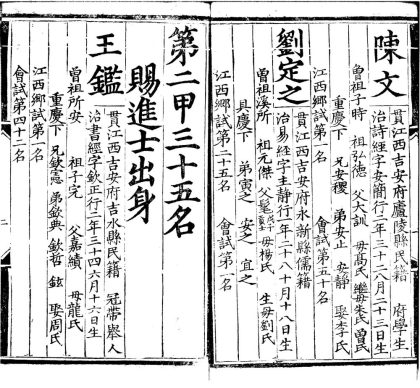 陳文
貫江西吉安府廬陵縣民籍 府學生
治詩經字安簡行二年三十二八月二十三日生
曾祖子時 祖弘德 父大訓 母高氏 繼母朱氏 曾氏
重慶下 兄安稷 弟安止 安靜 娶李氏
江西鄉試第一名 會試第五十名
劉定之
貫江西吉安府永新縣儒籍
治易經字主靜行一年二十八十月十八日生
曾祖溪所 祖元傑 父髦 母楊氏 生母劉氏
具慶下 弟寅之 安之 宜之
江西鄉試第二十五名 會試第一名
第二甲三十五名
賜進士出身
王鑑
貫江西吉安府吉水縣民籍 冠帶舉人
治書經字欽正行二年三十四六月十六日生
曾祖所安 祖子完 父嘉績 母龍氏
重慶下 兄欽憲 弟欽典 欽哲 鉉 娶周氏
江西鄉試第一名
會試第四十二名